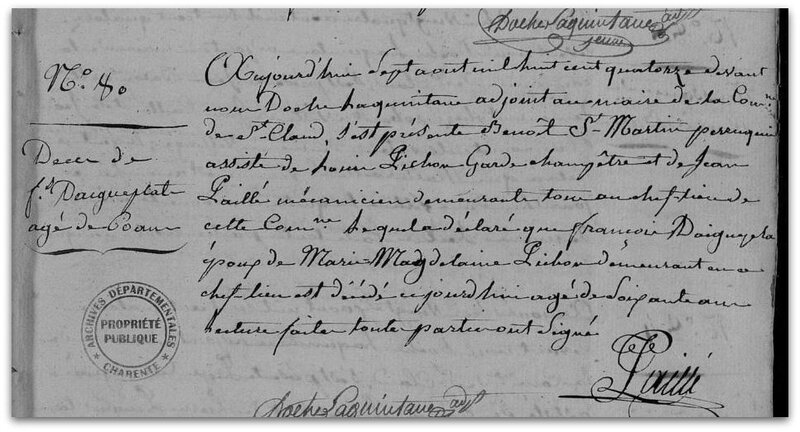 Docher Laquintane adj
jeune
N.º 80
Deces de
f.s Daigueplat
agé de 60 ans
Aujourd'hui sept aout mil huit cent quatorze devant
nous Docher Laquintane adjoint au maire de la Com.ne
de S.t Claud, s'est présenté Benoît S.t Martin perruquier
assisté de Louis Pichon Garde champêtre et de Jean
Paillé mécanicien demeurants tous au chef-lieu de
cette Com.ne Lequel a déclaré que françois
époux de Marie Magdelaine Pichon demeurant en ce
chef lieu est décédé cejourd'hui agé de soixante ans
Lecture faite toute partie ont Signé
Paillé
Docher Laquintane adj
ARCHIVES DÉPARTEMENTALES
PROPRIÉTÉ
PUBLIQUE
CHARENTE